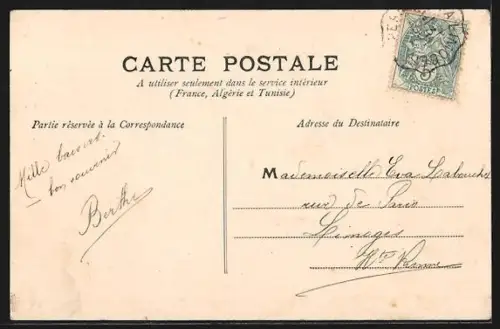 CARTE POSTALE
A utiliser seulement dans le service intérieur
(France, Algérie et Tunisie)
Partie réservée à la Correspondance
Adresse du Destinataire
Mille baisers
bon souvenir
Berthe
Mademoiselle Eva
rue de Paris
Limoges
Hte Vienne
5c
POSTES